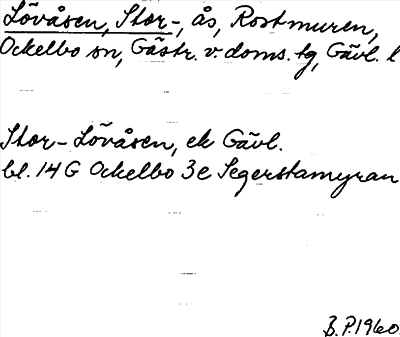 Lövåsen, Stor-, ås, Rostmuren,
Ockelbo sn, Gästr. v. doms. tg, Gävl. l
Stor-Lövåsen, ek Gävl.
bl. 14 G Ockelbo 3e Segerstamyran
B.P.1960